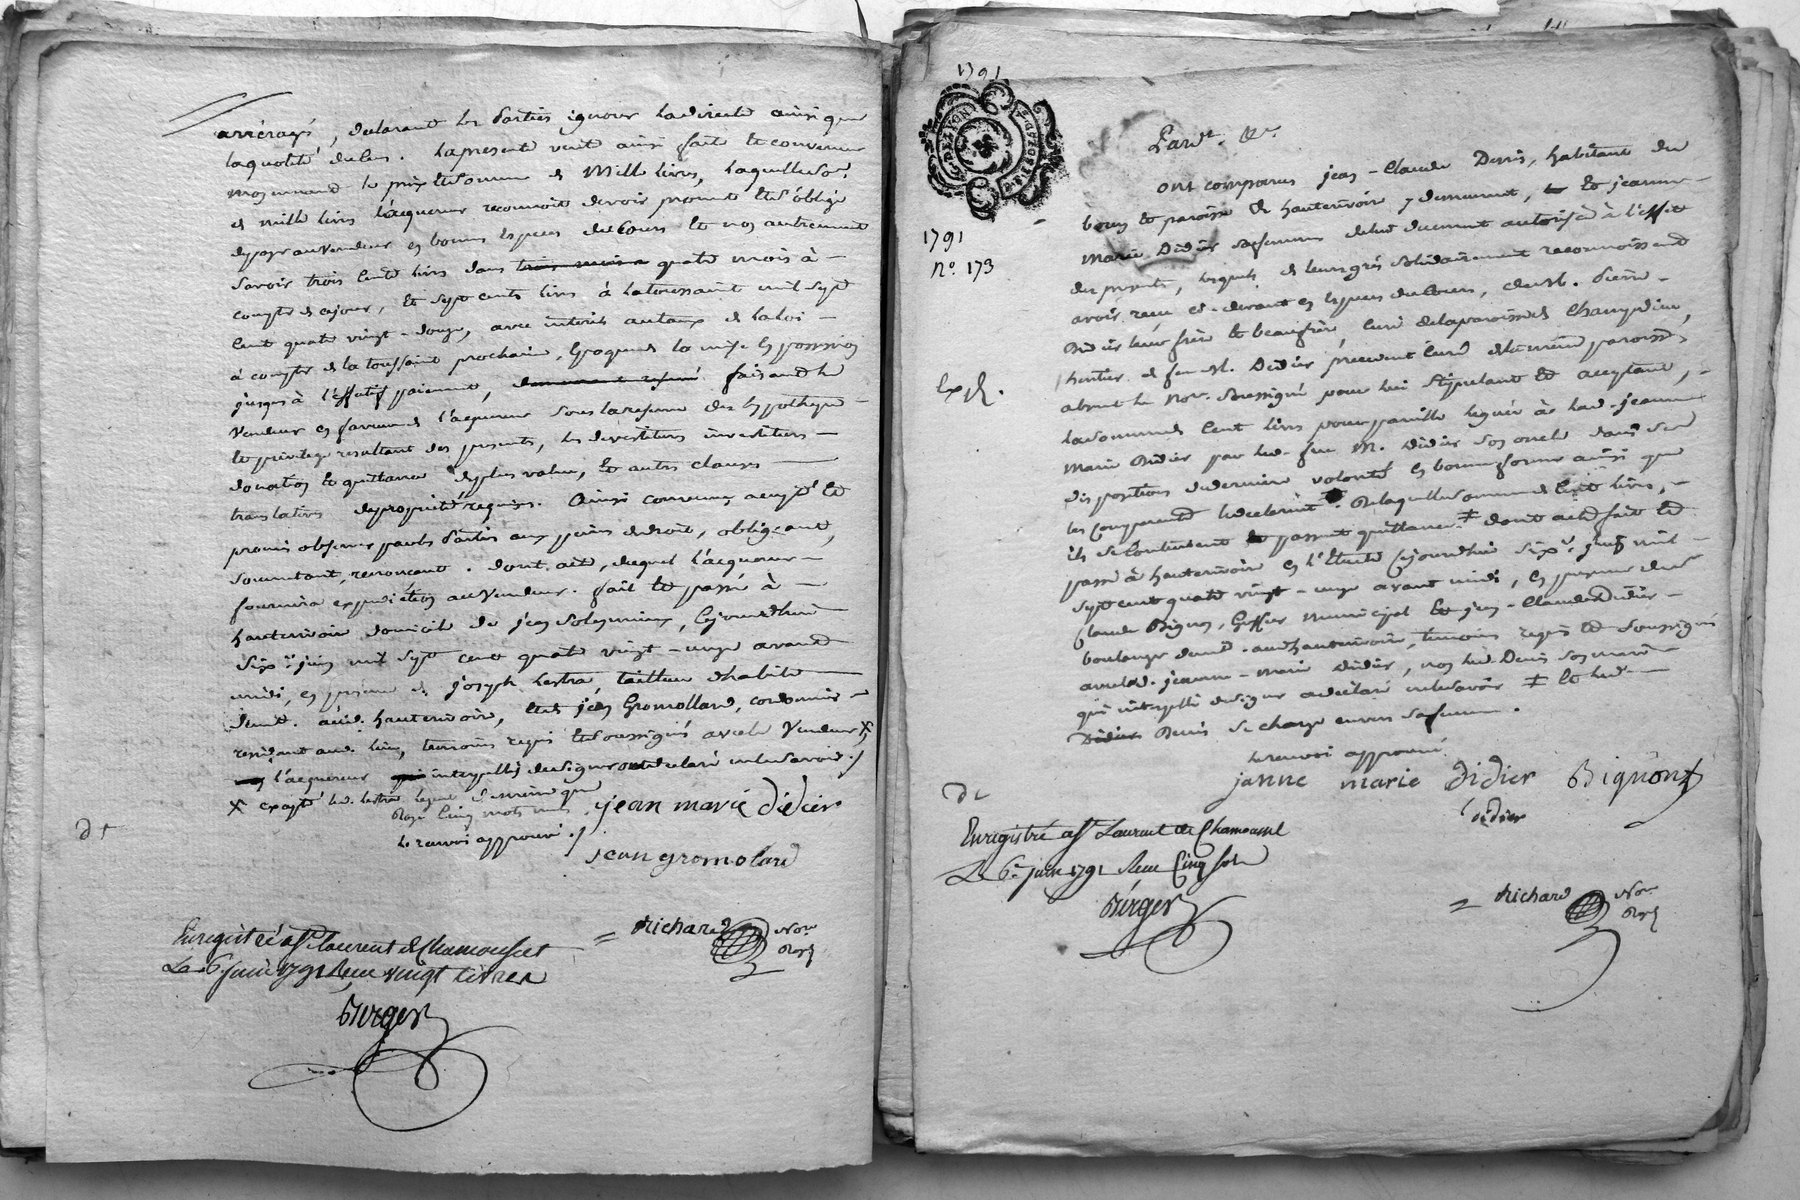 arrérages, déclarant les parties ignorer la directe ainsi que
la quotité du lieu. la presente vente ainsi faite et convenue
moyennant le prix et somme de Mille livres, laquelle somme
de mille livres l'acquereur reconnoit devoir promet et s'oblige
de payer au vendeur en bonnes especes de cours et non autrement
savoir trois cents livres dans quatre mois à
compter de ce jour, et sept cents livres à la toussaint mil sept
cent quatre vingt-douze, avec interets au taux de la loi
à compter de la toussaint prochaine, époque de la mise en possession
jusques à l'effectif paiement, faisant le
vendeur en faveur de l'acquereur sous la reserve des hypotheque
et privilege resultant des presentes, les devestitures investitures
donation et quittance de plus value, et autres clauses
translatives de propriété requises. Ainsi convenu, accepté et
promis observer par les parties aux peines de droit, obligeant,
soumettant, renonçant. dont acte, duquel l'acquereur
fournira expedition au vendeur. fait et passé à
hauterivoire domicile de jean, cejourd'hui
six juin mil sept cent quatre vingt-onze avant
midi, en presence de joseph lestra tailleur d'habits
demt. aud. hauterivoire, et de jean Gromollard, cordonnier
residant aud. lieu, temoins requis et soussignés avec le vendeur ;
l'acquereur interpellé de signer ont déclaré ne le savoir ./
+ excepté led. lestra lequel de même que
Rayé cinq mots nuls jean marie didier
le renvoi approuvé ./
jean gromolard
dt
Enregistré à St. Laurent de Chamousset
Le 6 juin 1791 Reçu vingt livres
= Richard Nore
Berger
1791
G. DE LYON
1791
No. 173
Pardt. &c.
ont comparus jean-Claude Denis, habitant du
bourg et paroisse de hauterivoire y demeurant, et jeanne
Marie Didier sa femme de lui duement autorisée à l'effet
des presentes, lesquels de leurs grés solidairement reconnoissent
avoir reçu ci-devant en especes de cours, de M. Pierre
Didier leur frere et beaufrere, curé de la paroisse de Champdieu,
heritier de feu M. Didier precedent curé de la même paroisse,
absent le Nore. soussigné pour lui stipulant et acceptant,
la somme de cent livres pour pareille leguée à lad. jeanne
Marie Didier par led. feu M. Didier son oncle dans ses
dispositions de derniere volonté en bonne forme ainsi que
les comparants le declarent. De laquelle somme de cent livres,
ils se contentent et passent quittance. ‡ dont acte fait et
passé à hauterivoire en l'Etude cejourd'hui six juin mil
sept cent quatre vingt-onze avant midi, en presence de
Claude Bignon, Greffier municipal et jean-Claude Didier
boulanger demt. aud. hauterivoire, temoins requis et soussignés
avec lad. jeanne-marie didier, non led. Denis son mari
qui interpellé de signer a déclaré ne le savoir ‡ et led.
Denis se charge envers sa femme.
le renvoi approuvé
janne marie didier Bignon
didier
dt
Enregistré à St. Laurent de Chamousset
Le 6 juin 1791 Reçu Cinq sols
Berger
= Richard Nore